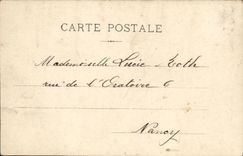 CARTE POSTALE
Mademoiselle Lucie Roth
rue de l'Oratoire 6
Nancy